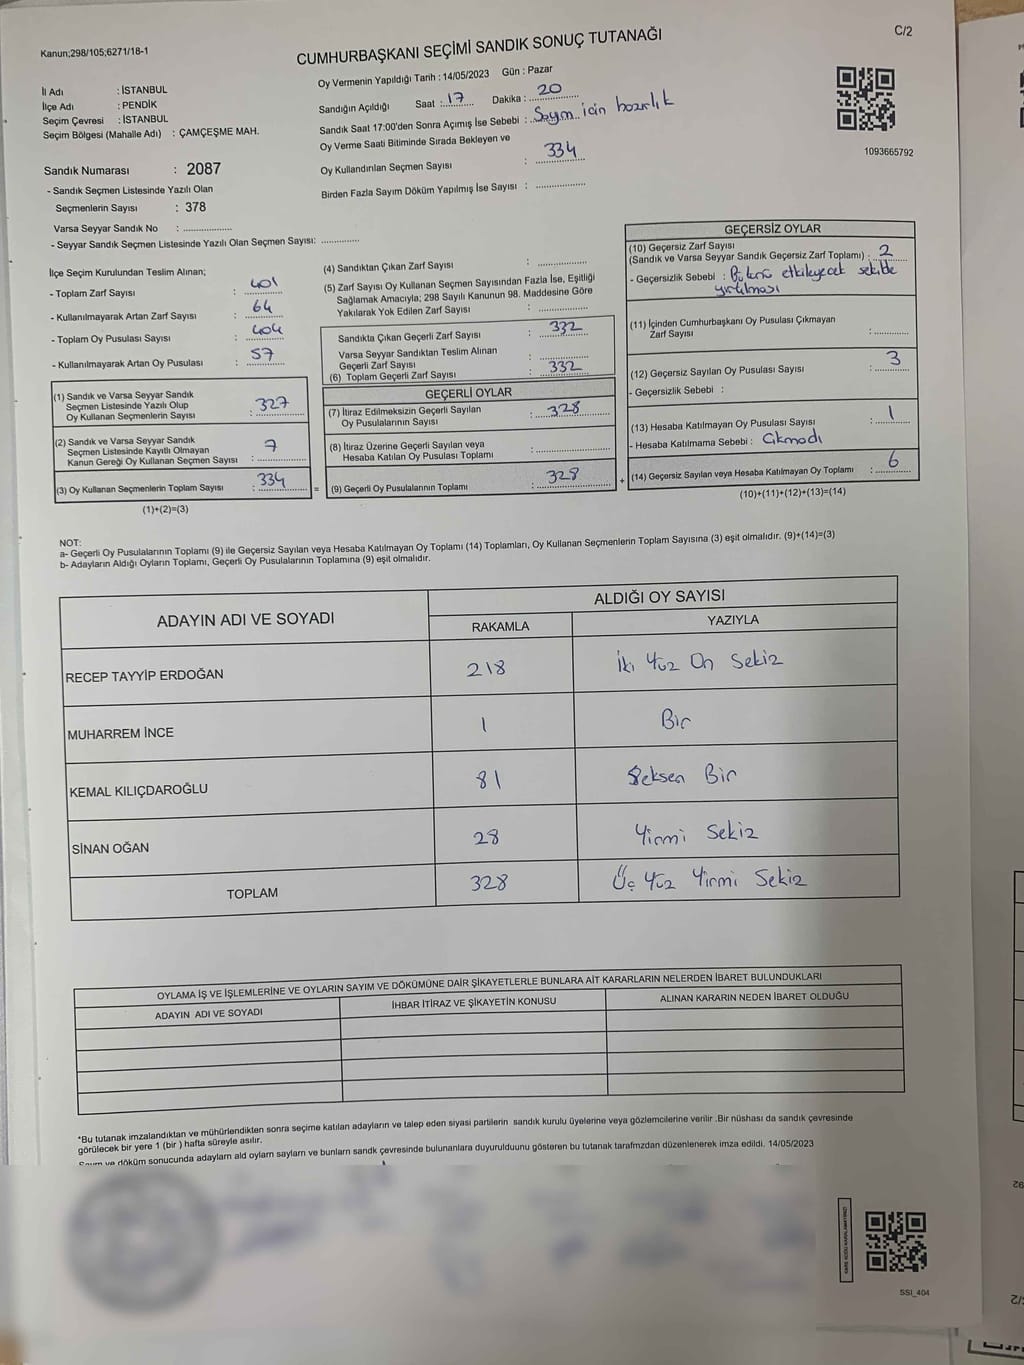 Kanun;298/105;6271/18-1
C/2
CUMHURBAŞKANI SEÇİMİ SANDIK SONUÇ TUTANAĞI
İl Adı : İSTANBUL
İlçe Adı : PENDİK
Seçim Çevresi : İSTANBUL
Seçim Bölgesi (Mahalle Adı) : ÇAMÇEŞME MAH.
Sandık Numarası : 2087
- Sandık Seçmen Listesinde Yazılı Olan
Seçmenlerin Sayısı : 378
Varsa Seyyar Sandık No : ..................
- Seyyar Sandık Seçmen Listesinde Yazılı Olan Seçmen Sayısı: .............
Oy Vermenin Yapıldığı Tarih : 14/05/2023 Gün : Pazar
Sandığın Açıldığı Saat : 17 Dakika : 20
Sandık Saat 17:00'den Sonra Açımış İse Sebebi : Sayım için hazırlık
Oy Verme Saati Bitiminde Sırada Bekleyen ve
Oy Kullandırılan Seçmen Sayısı : 334
Birden Fazla Sayım Döküm Yapılmış İse Sayısı : .................
1093665792
İlçe Seçim Kurulundan Teslim Alınan;
- Toplam Zarf Sayısı : 401
- Kullanılmayarak Artan Zarf Sayısı : 64
- Toplam Oy Pusulası Sayısı : 404
- Kullanılmayarak Artan Oy Pusulası : 57
(1) Sandık ve Varsa Seyyar Sandık
Seçmen Listesinde Yazılı Olup
Oy Kullanan Seçmenlerin Sayısı : 327
(2) Sandık ve Varsa Seyyar Sandık
Seçmen Listesinde Kayıtlı Olmayan
Kanun Gereği Oy Kullanan Seçmen Sayısı : 7
(3) Oy Kullanan Seçmenlerin Toplam Sayısı : 334
(1)+(2)=(3)
=
(4) Sandıktan Çıkan Zarf Sayısı : .................
(5) Zarf Sayısı Oy Kullanan Seçmen Sayısından Fazla İse, Eşitliği
Sağlamak Amacıyla; 298 Sayılı Kanunun 98. Maddesine Göre
Yakılarak Yok Edilen Zarf Sayısı : .................
Sandıkta Çıkan Geçerli Zarf Sayısı : 332
Varsa Seyyar Sandıktan Teslim Alınan
Geçerli Zarf Sayısı : .................
(6) Toplam Geçerli Zarf Sayısı : 332
GEÇERLİ OYLAR
(7) İtiraz Edilmeksizin Geçerli Sayılan
Oy Pusulalarının Sayısı : 328
(8) İtiraz Üzerine Geçerli Sayılan veya
Hesaba Katılan Oy Pusulası Toplamı : .................
(9) Geçerli Oy Pusulalarının Toplamı : 328
+
GEÇERSİZ OYLAR
(10) Geçersiz Zarf Sayısı
(Sandık ve Varsa Seyyar Sandık Geçersiz Zarf Toplamı) : 2
- Geçersizlik Sebebi : etkileyecek şekilde
yırtılması
(11) İçinden Cumhurbaşkanı Oy Pusulası Çıkmayan
Zarf Sayısı : ............
(12) Geçersiz Sayılan Oy Pusulası Sayısı : 3
- Geçersizlik Sebebi :
(13) Hesaba Katılmayan Oy Pusulası Sayısı : 1
- Hesaba Katılmama Sebebi : Çıkmadı
(14) Geçersiz Sayılan veya Hesaba Katılmayan Oy Toplamı : 6
(10)+(11)+(12)+(13)=(14)
NOT:
a- Geçerli Oy Pusulalarının Toplamı (9) ile Geçersiz Sayılan veya Hesaba Katılmayan Oy Toplamı (14) Toplamları, Oy Kullanan Seçmenlerin Toplam Sayısına (3) eşit olmalıdır. (9)+(14)=(3)
b- Adayların Aldığı Oyların Toplamı, Geçerli Oy Pusulalarının Toplamına (9) eşit olmalıdır.
ADAYIN ADI VE SOYADI
ALDIĞI OY SAYISI
RAKAMLA YAZIYLA
RECEP TAYYİP ERDOĞAN 218 İki Yüz On Sekiz
MUHARREM İNCE 1 Bir
KEMAL KILIÇDAROĞLU 81 Seksen Bir
SİNAN OĞAN 28 Yirmi Sekiz
TOPLAM 328 Üç Yüz Yirmi Sekiz
OYLAMA İŞ VE İŞLEMLERİNE VE OYLARIN SAYIM VE DÖKÜMÜNE DAİR ŞİKAYETLERLE BUNLARA AİT KARARLARIN NELERDEN İBARET BULUNDUKLARI
ADAYIN ADI VE SOYADI İHBAR İTİRAZ VE ŞİKAYETİN KONUSU ALINAN KARARIN NEDEN İBARET OLDUĞU
*Bu tutanak imzalandıktan ve mühürlendikten sonra seçime katılan adayların ve talep eden siyasi partilerin sandık kurulu üyelerine veya gözlemcilerine verilir .Bir nüshası da sandık çevresinde
görülecek bir yere 1 (bir ) hafta süreyle asılır.
Sayım ve döküm sonucunda adayların ald oylarn saylarn ve bunlarn sandk çevresinde bulunanlara duyurulduunu gösteren bu tutanak tarafmzdan düzenlenerek imza edildi. 14/05/2023
SSI_404